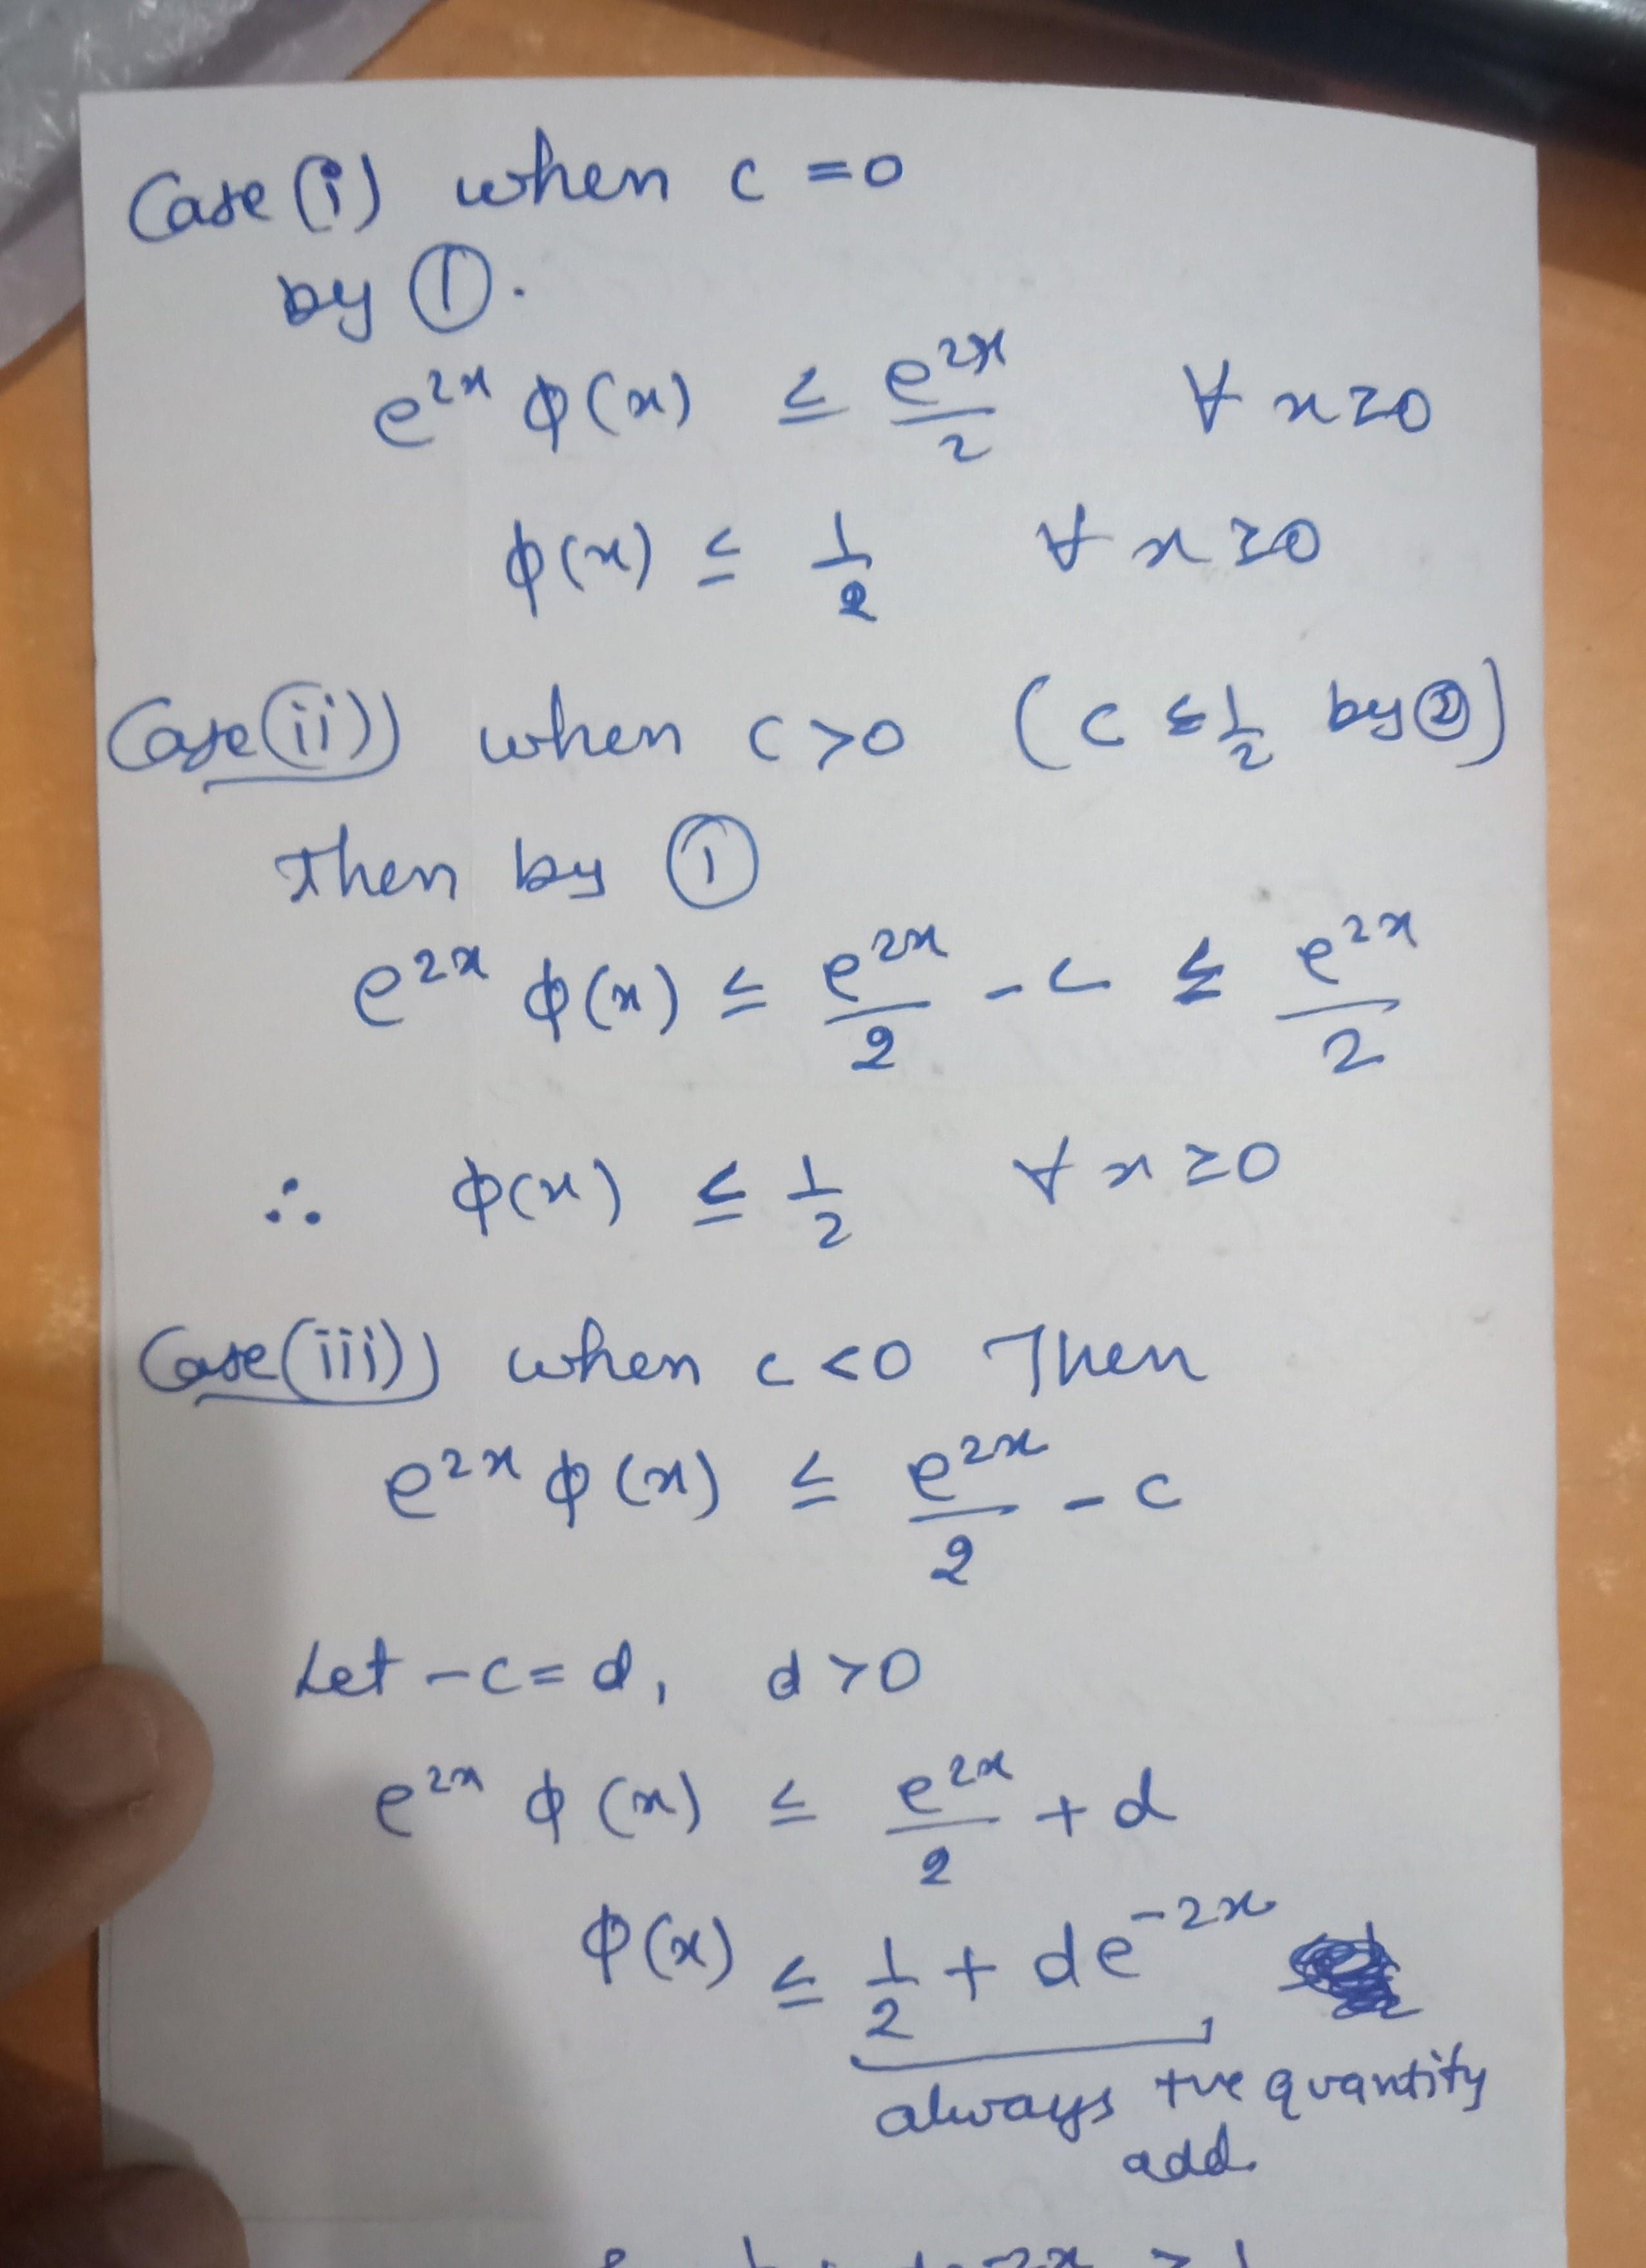 Case (i) when c = 0
by ①.
e^{2x} φ(x) ≤ e^{2x}/2 ∀ x ≥ 0
φ(x) ≤ 1/2 ∀ x ≥ 0
Case (ii) when c > 0 (c ≤ 1/2 by ②)
Then by ①
e^{2x} φ(x) ≤ e^{2x}/2 - c ≤ e^{2x}/2
∴ φ(x) ≤ 1/2 ∀ x ≥ 0
Case (iii) when c < 0 Then
e^{2x} φ(x) ≤ e^{2x}/2 - c
Let -c = d, d > 0
e^{2x} φ(x) ≤ e^{2x}/2 + d
φ(x) ≤ 1/2 + de^{-2x}
always +ve quantity
add